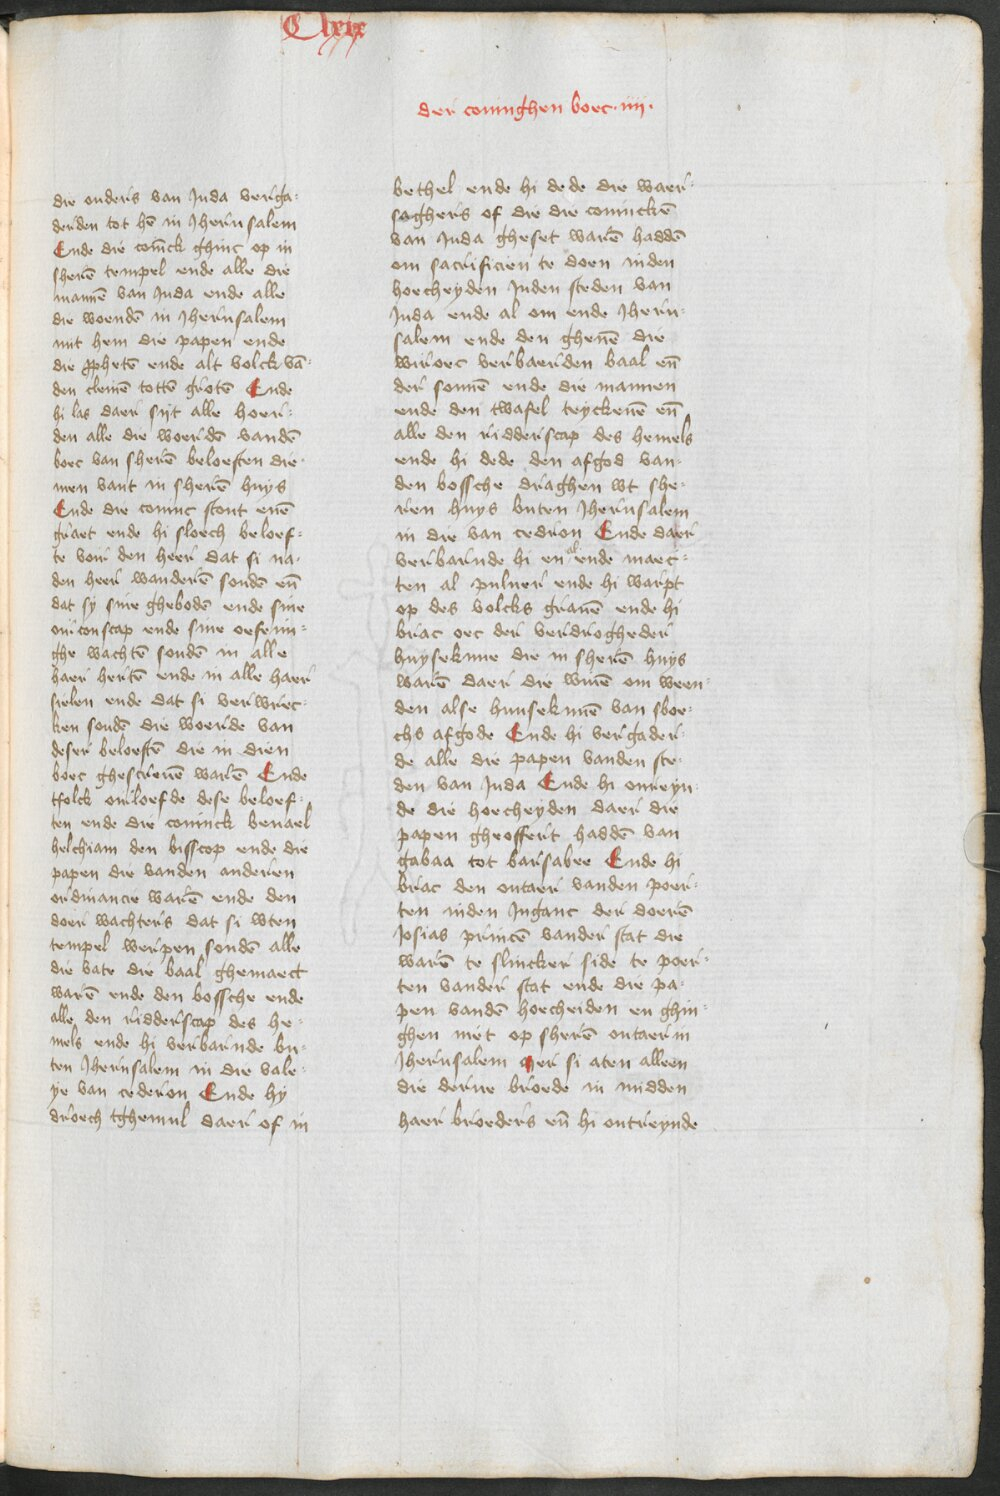 Clxix
der coninghen boec · iiii ·
die ouders van Juda verga-
derden tot hē in Jherusalem
Ende die conīck ghinc op in
sherē tempel ende alle die
mannē van Juda ende alle
die woendē in Jherusalem
mit hem die papen ende
die ꝓphetē ende alt volck vā-
den cleinē tottē grotē Ende
hi las daer sijt alle hoer-
den alle die woerdē vandē
boec van sherē beloeften die
men vant in sherē huys
Ende die coninc stont enē
graet ende hi sloech beloef-
te voir den heer dat si na-
den heer wanderē soudē eñ
dat sy sine ghebodē ende sine
oirconscap ende sine oefenin-
ghe wachtē soudē in alle
haer hertē ende in alle haer
sielen ende dat si verwrec-
ken soudē die woerde van
deser beloeftē die in dien
boec ghescreuē warē Ende
tfolck ouirloefde dese beloef-
ten ende die coninck beuael
helchiam den bisscop ende die
papen die vanden anderen
ordinancie warē ende den
doer wachters dat si wten
tempel werpen soudē alle
die vate die baal ghemaect
warē ende den bossche ende
alle den ridderscap des he-
mels ende hi verbarnde bu-
ten Jherusalem in die vale-
ye van cederon Ende hy
droech tghemul daer of in
bethel ende hi dede die waer-
soghers of die die coninckē
van Juda gheset warē haddē
om sacrificien te doen inden
hoecheyden Inden steden van
Juda ende al om ende Jheru-
salem ende den ghenē die
wiroec verbaerden baal eñ
der sonnē ende die mannen
ende den twafel teyckenē eñ
alle den ridderscap des hemels
ende hi dede den afgod van-
den bossche draghen wt she-
ren huys buten Jherusalem
in die van cedron Ende daer
verbarnde hi en al ende maec-
ten al puluer ende hi warpt
op des volcks grauē ende hi
brac oec der verdrogheder
huysekine die in sherē huys
warē daer die wiuē om ween-
den alse huusekinēn van sboe-
chs afgode Ende hi vergader-
de alle die papen vanden ste-
den van Juda Ende hi onreyn-
de die hoecheyden daer die
papen gheoffert haddē van
gabaa tot barsabee Ende hi
brac den outaer vanden poer-
ten inden Inganc der doerē
Josias princē vander stat die
warē te slincker side te poer-
ten vander stat ende die pa-
pen vandē hoecheiden en ghin-
ghen niet op sherē outaer in
Jherusalem mer si aten alleen
die derue broede in midden
haer broeders eñ hi ontreynde